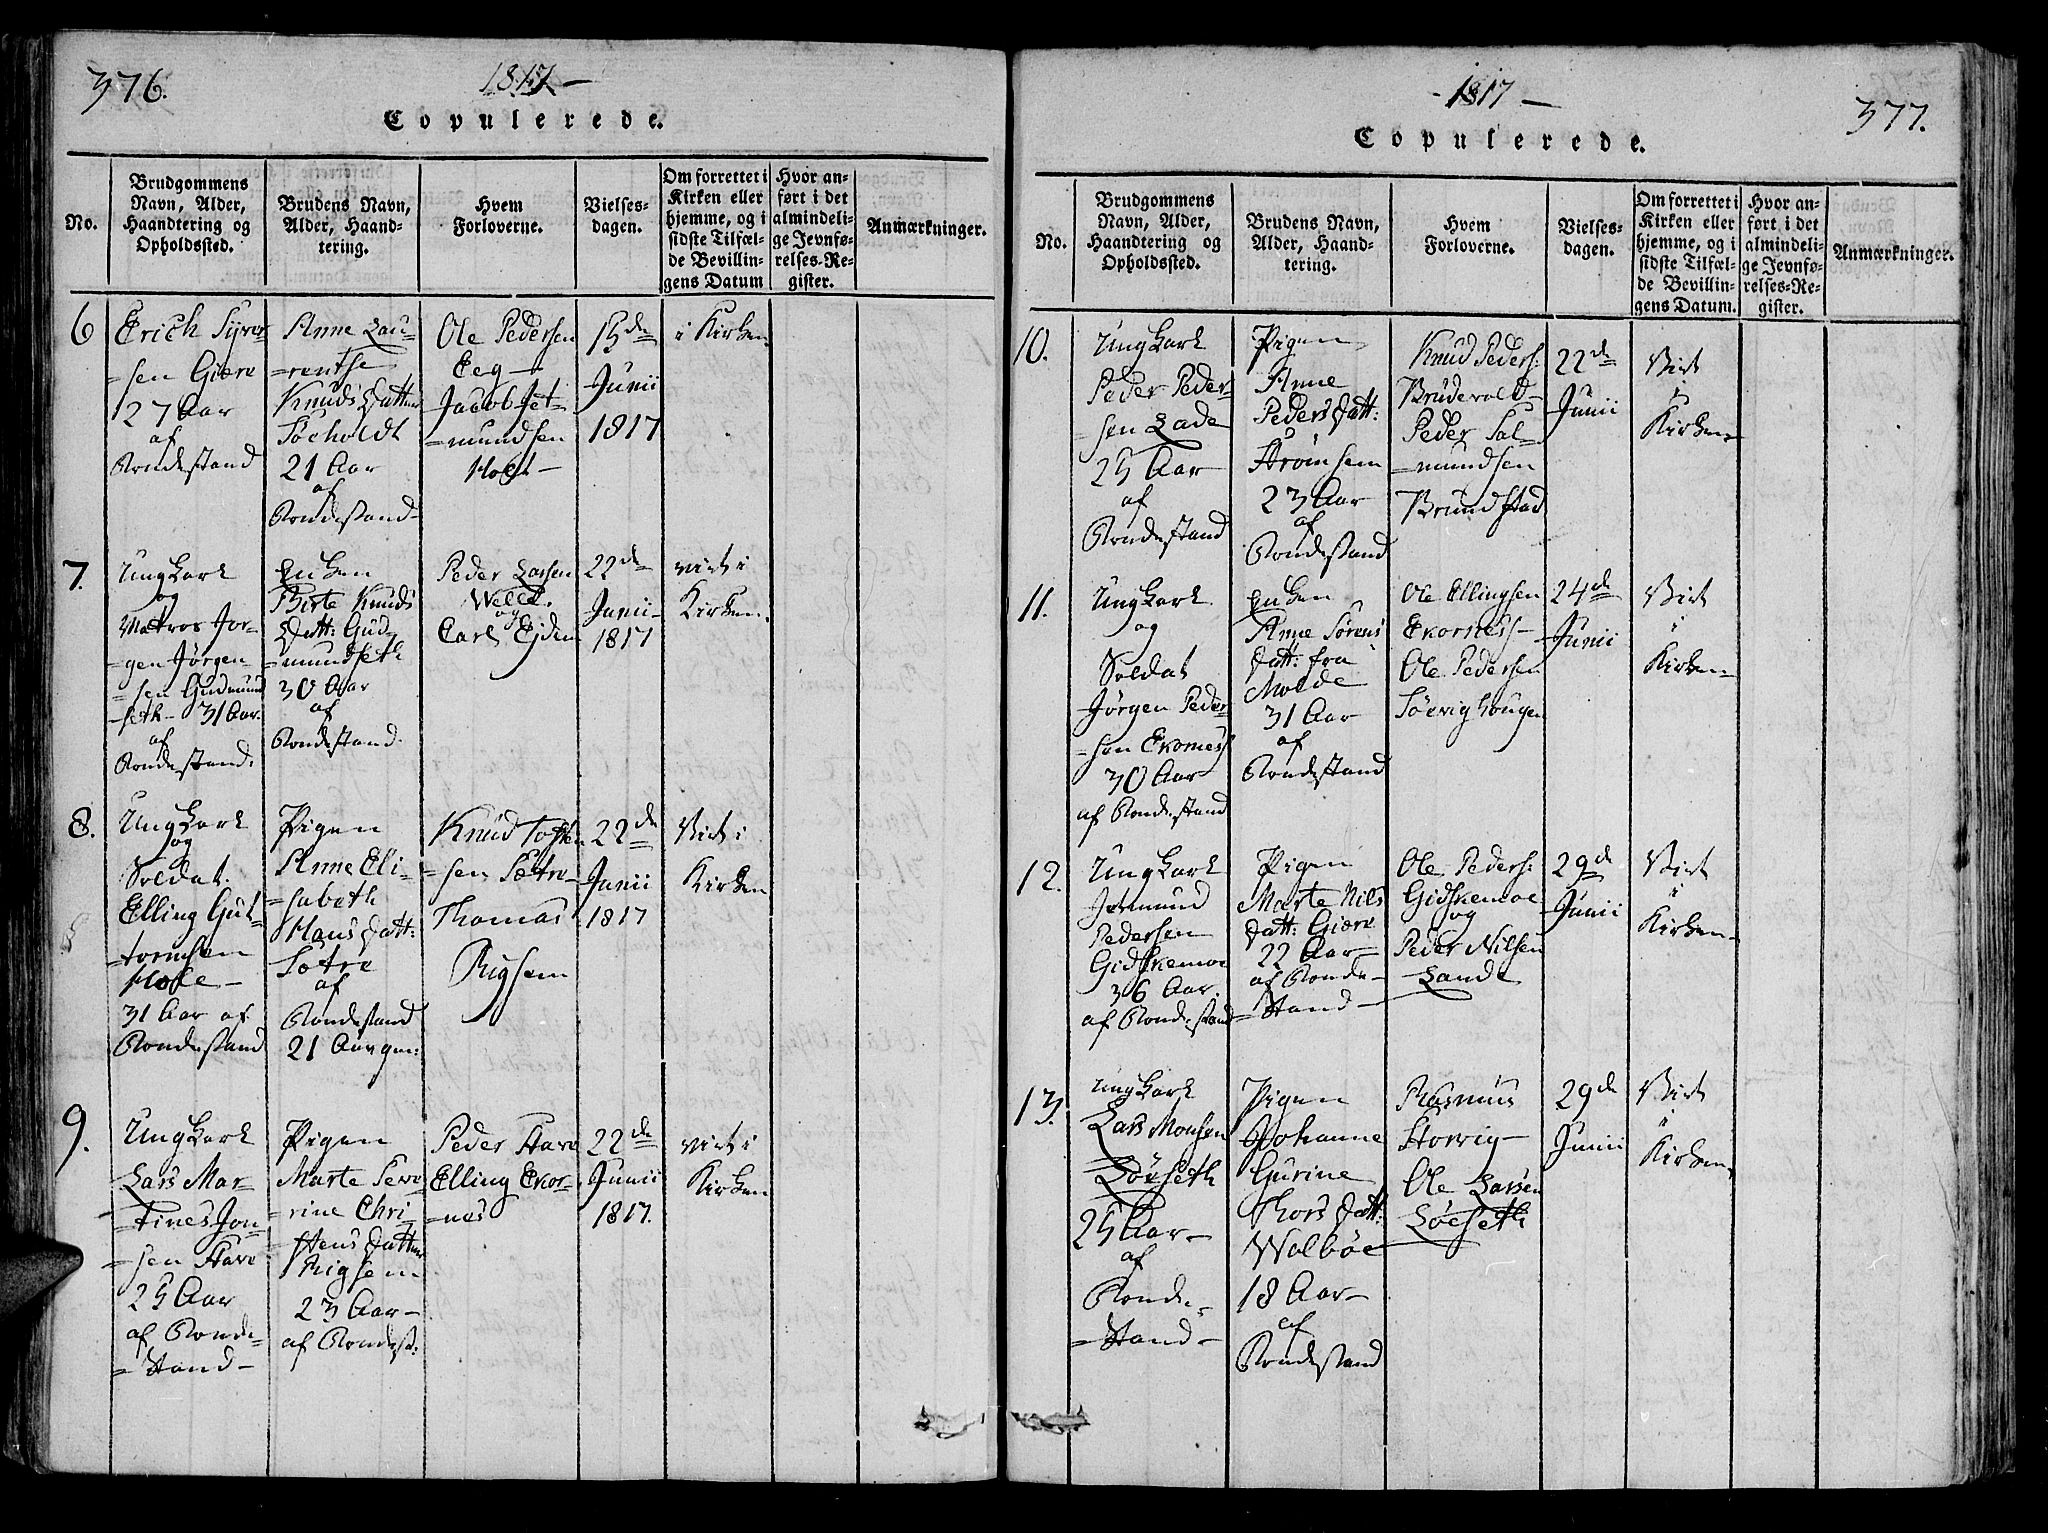 376.
1817 –
Copulerede.
No.
Brudgommens
Navn, Alder,
Haandtering og
Opholdssted.
Brudens Navn,
Alder, Haand-
tering.
Hvem
Forloverne.
Vielses-
dagen.
Om forrettet i
Kirken eller
hjemme, og i
sidste Tilfæl-
de Bevillin-
gens Datum
Hvor an-
ført i det
almindeli-
ge Jevnfø-
relses-Re-
gister.
Anmærkninger.
6
Erich Syver-
=sen Giære
27 Aar
af
Bondestand
Anne Lau-
=rentse
Knuds Datter
Söeholdt
21 Aar
af
Bondestand-
Ole Pedersen
Eeg –
Jacob Jet-
=mundsen
Hoel –
15de
Junii
1817
i Kirken
7.
Ungkarl
og
Matros Jør-
=gen Jørgen-
=sen Gudmund
=seth – 31 Aar.
af
Bondestand.
Enken
Birte Knuds
Datt: Gud-
=mundseth
30 Aar
af
Bondestand.
Peder Larsen
Welle.
og
Carl Eiden
22de
Junii-
1817
Viet i
Kirken.
8.
Ungkarl
og
Soldat.
Elling Gut-
=tormsen
Hole –
31 Aar af
Bondestand
Pigen
Anne Eli-
=sabeth
Hans datt:
Sætre
af
Bondestand
21 Aar gm:
Knud Tosten
=sen Sætre –
Thomas
Rigsem
22de
Junii
1817
Viet i
Kirken
9.
Ungkarl
Lars Mar-
=tines Jon-
=sen Stave
25 Aar
af Bonde=
=Stand –
Pigen
Marte Seve
=rine Chri-
=stens datter
Rigsem
23 Aar –
af Bondest:
Peder Stave
Elling Ekor-
=nes
22de
Junii
1817.
Viet i
Kirken
- 1817 –
377.
Copulerede.
No.
Brudgommens
Navn, Alder,
Haandtering og
Opholdssted.
Brudens Navn,
Alder, Haand-
tering.
Hvem
Forloverne.
Vielses-
dagen.
Om forrettet i
Kirken eller
hjemme, og i
sidste Tilfæl-
de Bevillin-
gens Datum.
Hvor an-
ført i det
almindeli-
ge Jevnfø-
relses-Re-
gister.
Anmærkninger.
10.
Ungkarl
Peder Peder-
=sen Lade
25 Aar
af
Bondestand
Pigen
Anne
Peders datt:
Strømsem
23 Aar
af
Bondestand
Knud Peders:
Brudevold –
Peder Sal-
=mundsen
Brundstad
22de
Junii
Viet
i
Kirken
11.
Ungkarl
og
Soldat
Jørgen Peder
=sen Ekornes
30 Aar
af Bondestand
Enken
Anne Sørens
datt: fra
Molde
31 Aar
af
Bondestand
Ole Ellingsen
Ekornes –
Ole Pedersen
Söevighougen
24de
Junii
Viet
i
Kirken
12.
Ungkarl
Jetmund
Pedersen
Gidskemoe
36 Aar.
af Bondestand
Pigen
Marte Nils
datt: Giære
22 Aar –
af Bonde-
=Stand –
Ole Peders:
Gidskemoe
og
Peder Nilsen
Lande
29de
Junii
Viet
i
Kirken
13.
Ungkarl
Lars Monsen
Löeseth
25 Aar –
af
Bonde=
=Stand –
Pigen
Johanne
Gurine
Thors datt:
Walböe
18 Aar –
af
Bondestand
Rasmus
Storvig –
Ole Larsen
Löeseth
29de
Junii
Viet
i
Kirken